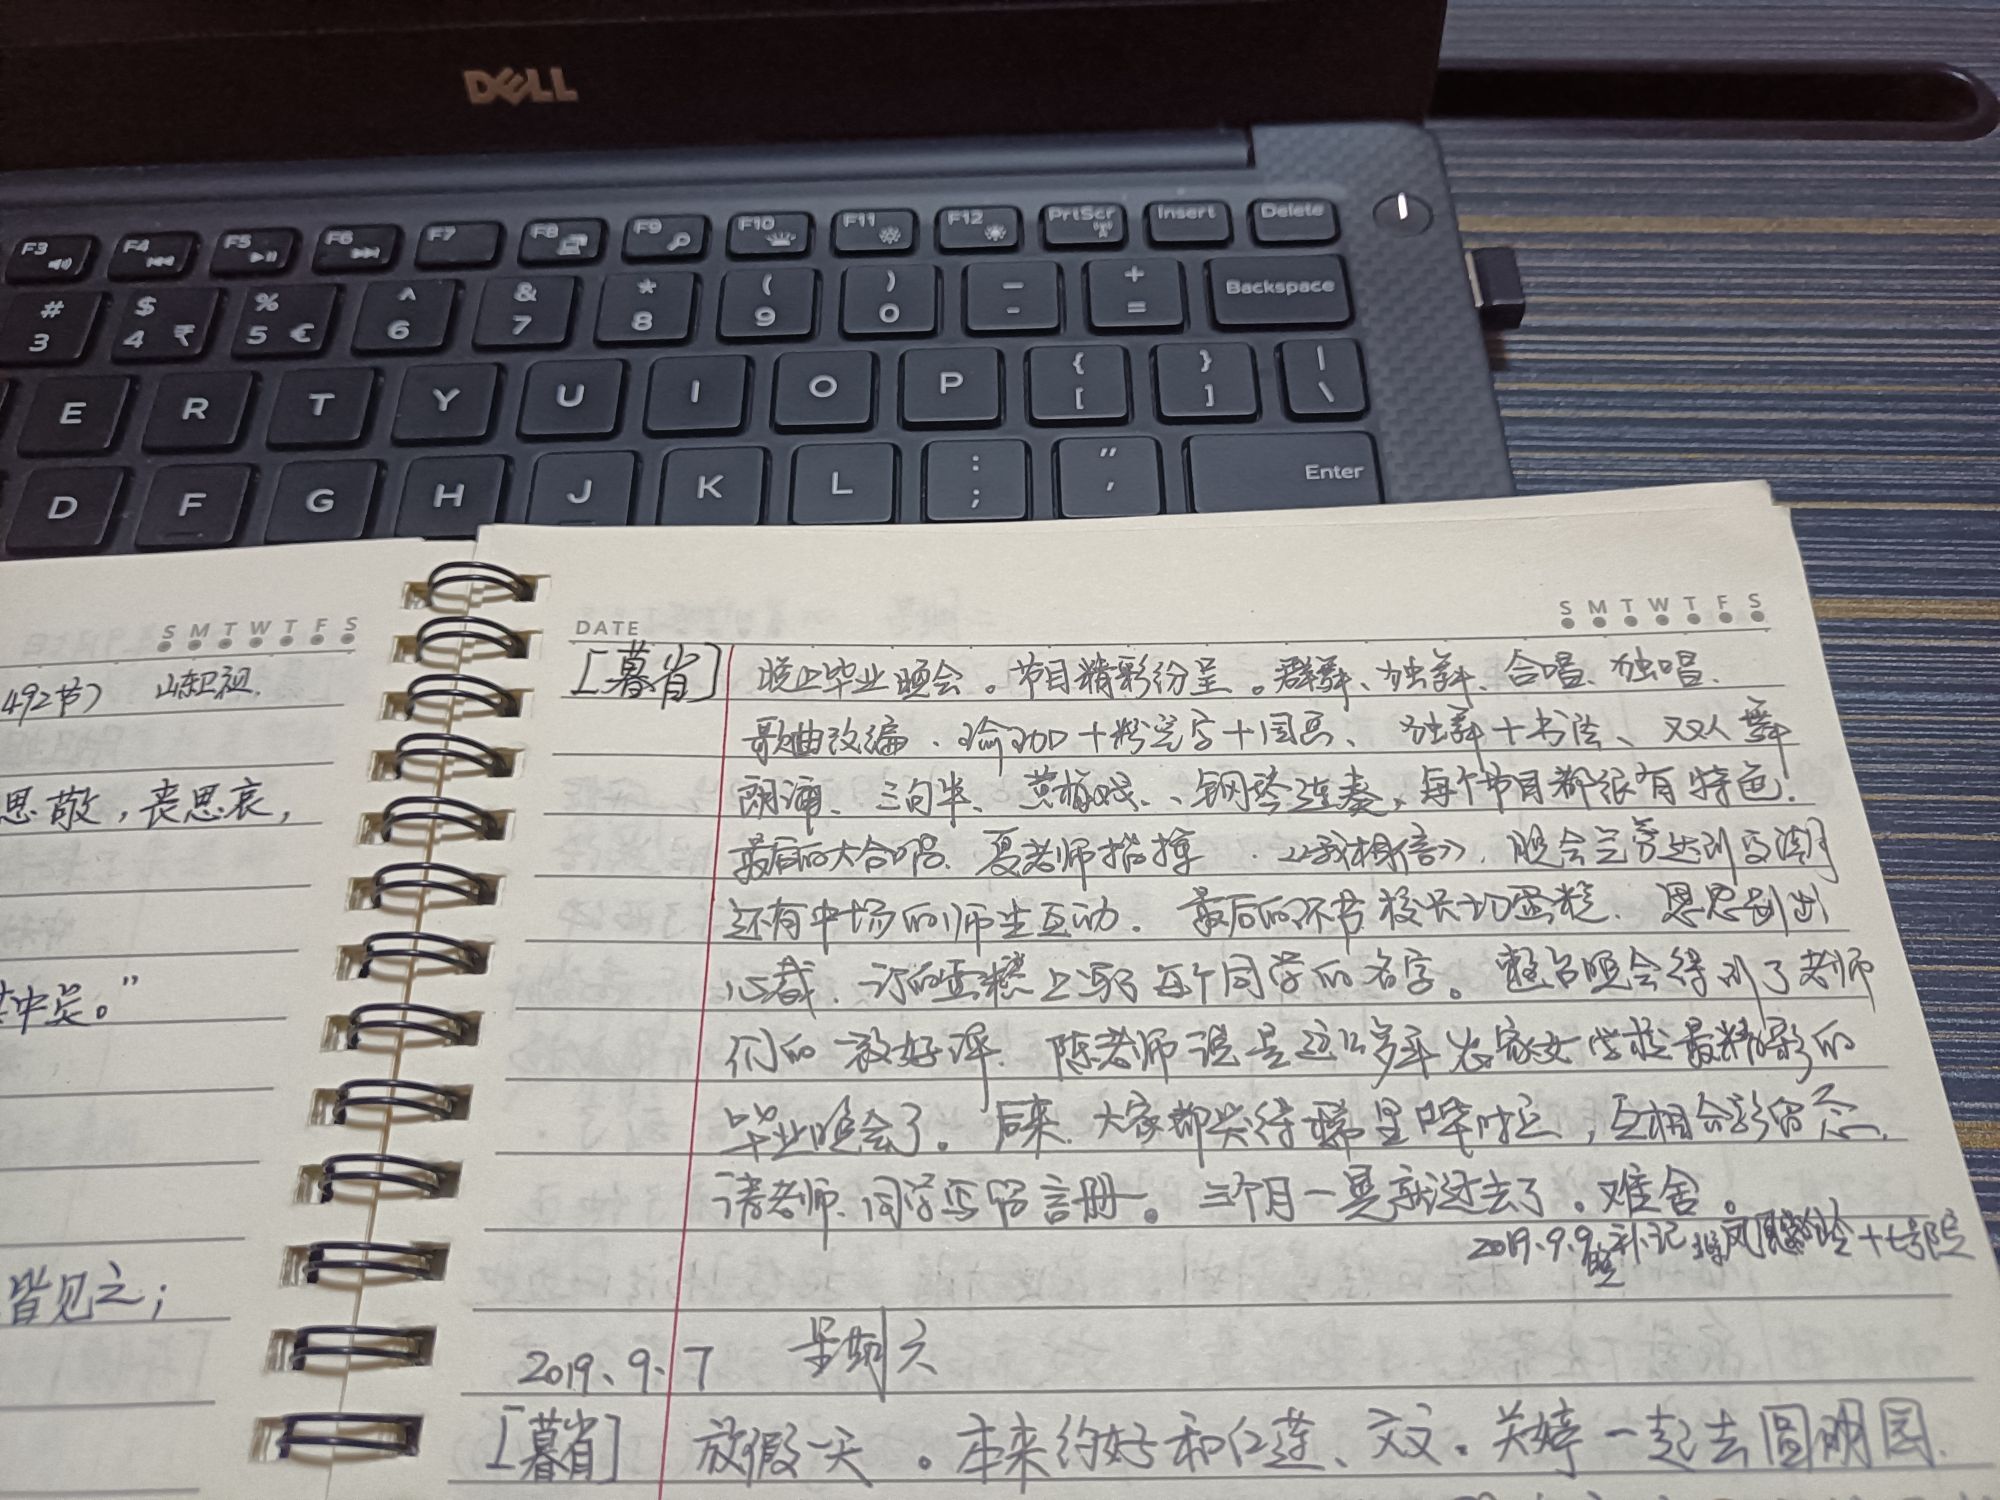 DELL
F3 F4 F5 F6 F7 F8 F9 F10 F11 F12 PrtScr Insert Delete
# 3 $ 4 ₹ % 5 € ^ 6 & 7 * 8 ( 9 ) 0 — - + = Backspace
E R T Y U I O P { [ } ] | \
D F G H J K L : ; " ' Enter
S M T W T F S
492节)
思敬，丧思哀，
中矣。”
皆见之；
DATE S M T W T F S
[暮省] 晚上毕业晚会。节目精彩纷呈。群舞、独舞、合唱、独唱、
歌曲改编、瑜珈+粉笔字+国画、独舞+书法、双人舞
朗诵、三句半、黄梅戏、、钢琴连奏，每个节目都很有特色.
最后的大合唱、夏老师指挥.《我相信》，晚会气氛达到高潮
还有中场的师生互动。最后的环节校长切蛋糕.恩思别出
心裁，订的蛋糕上写了每个同学的名字。整台晚会得到了老师
们的一致好评.陈老师说是这么多年农家女学校最精彩的
毕业晚会了。后来.大家都 ，互相合影留念.
请老师、同学写留言册。三个月一晃就过去了。难舍。
2019.9.9晚补记 十七号院
2019.9.7 星期六
[暮省] 放假一天。本来约好和仁莲、文文、关婷一起去圆明园.